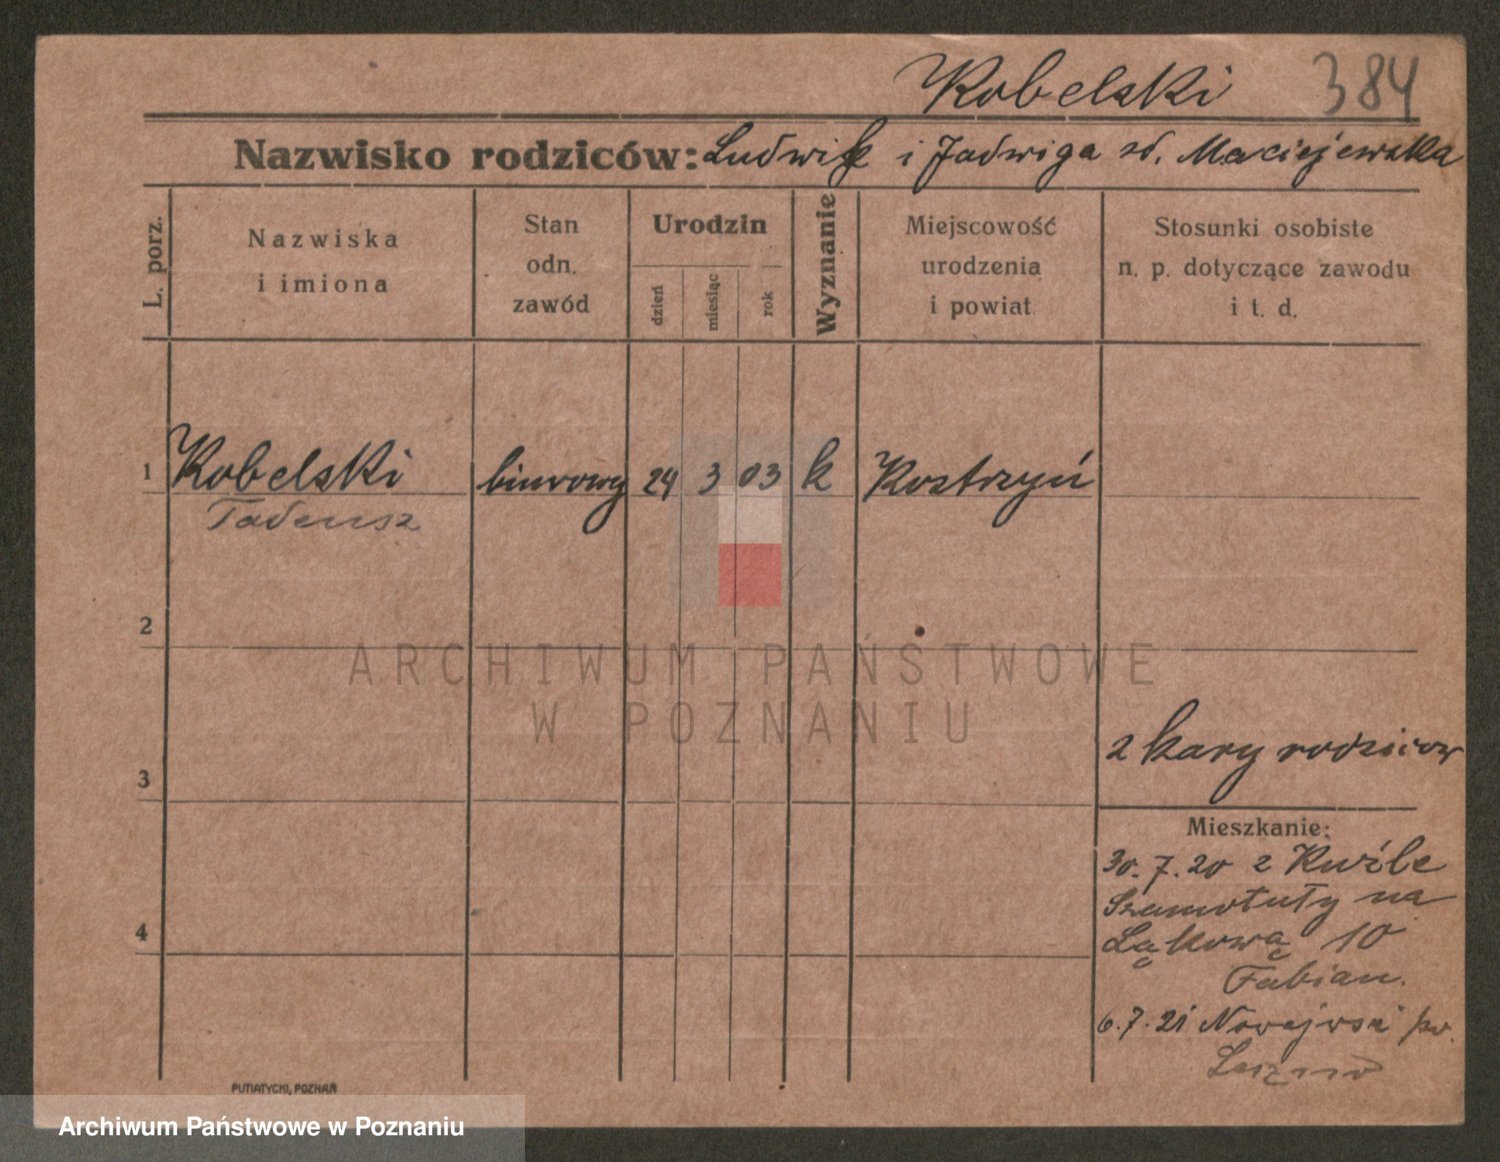 Kobelski 384
Nazwisko rodziców: Ludwik i Jadwiga zd. Maciejewska
L. porz.
Nazwiska
i imiona
Stan
odn.
zawód
Urodzin
dzień
miesiąc
rok
Wyznanie
Miejscowość
urodzenia
i powiat
Stosunki osobiste
n. p. dotyczące zawodu
i t. d.
1 Kobelski biurowy 24 3 03 k Kostrzyń
Tadeusz
2
ARCHIWUM PAŃSTWOWE
W POZNANIU
z kary rodziców
3
Mieszkanie:
30.7.20 z Kuźle
Szamotuły na
4
Łąkową 10
Fabian.
6.7.21 Nowejwsi pow.
Leszno
PUTIATYCKI, POZNAŃ
Archiwum Państwowe w Poznaniu